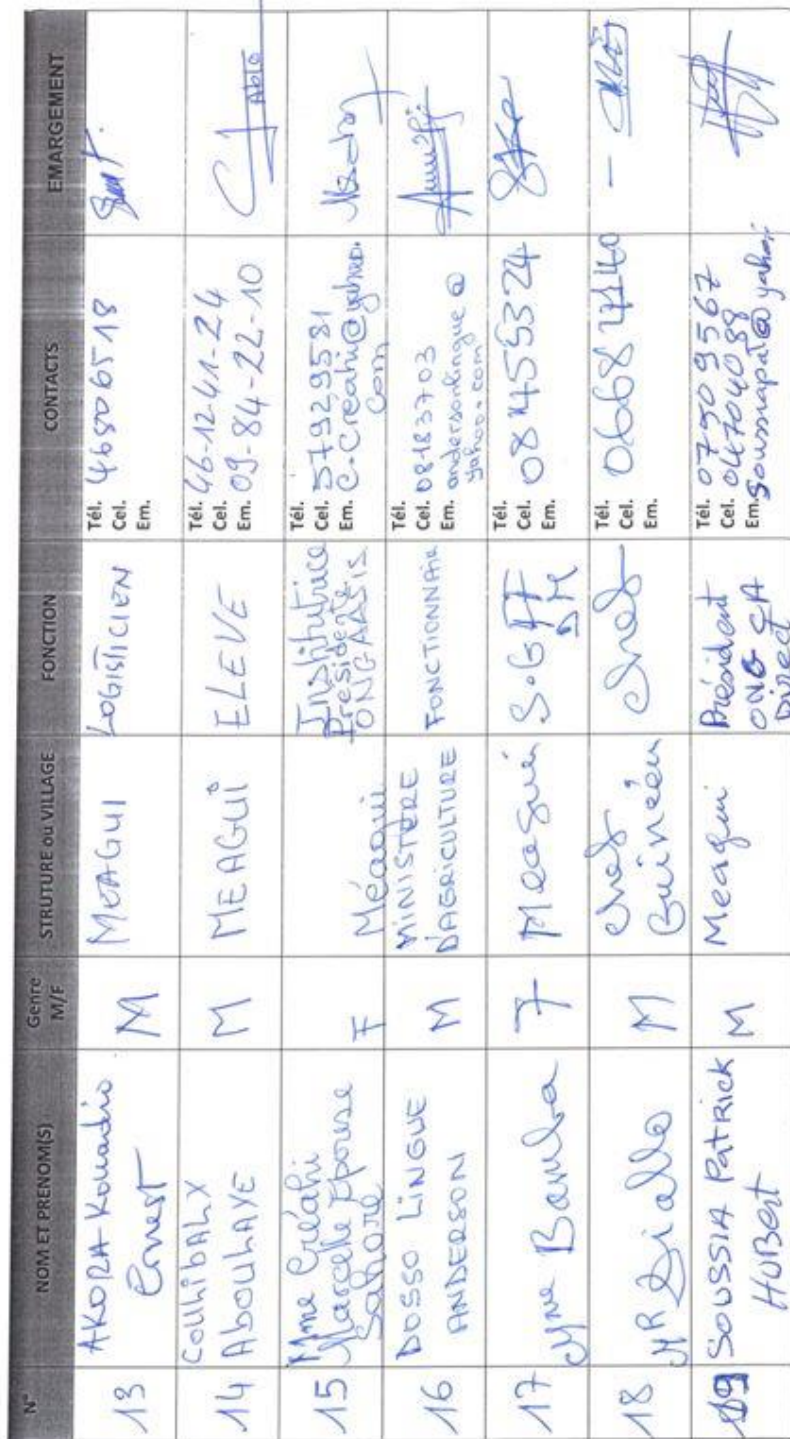 N° NOM ET PRENOM(S) Genre M/F STRUTURE ou VILLAGE FONCTION CONTACTS EMARGEMENT
13 AKORA Kouadio
Ernest
M
MEAGUI
LOGISTICIEN
Tél. 46506518
Cel.
Em.
14 COULIBALY
ABOULAYE
M
MEAGUI
ELEVE
Tél. 46-12-41-24
Cel. 09-84-22-10
Em.
Ablo
15 Mme Créahi
Marcelle Epouse
Sahoré
F
Méagui
Institutrice
Presidente
ONG AASIS
Tél.
Cel. 57929581
Em. C-Creahi@yahoo.
Com
16 DOSSO LINGUE
ANDERSON
M
MINISTERE
D'AGRICULTURE
FONCTIONNAIRE
Tél.
Cel. 08183703
Em. andersonlingue@
yahoo.com
17 Mme Bamba
F
Meagui
Tél.
Cel. 08455324
Em.
18 MR Diallo
M
chef
Guinéen
chef
Tél.
Cel.
Em.
19 SOUSSIA PATRICK
HUBERT
M
Meagui
Président
ONG CA
Direct
Tél. 07509567
Cel. 04704088
Em.